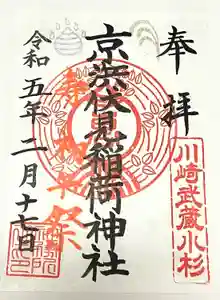 奉拝
川崎武蔵小杉
京濱伏見稲荷神社
令和五年二月十七日